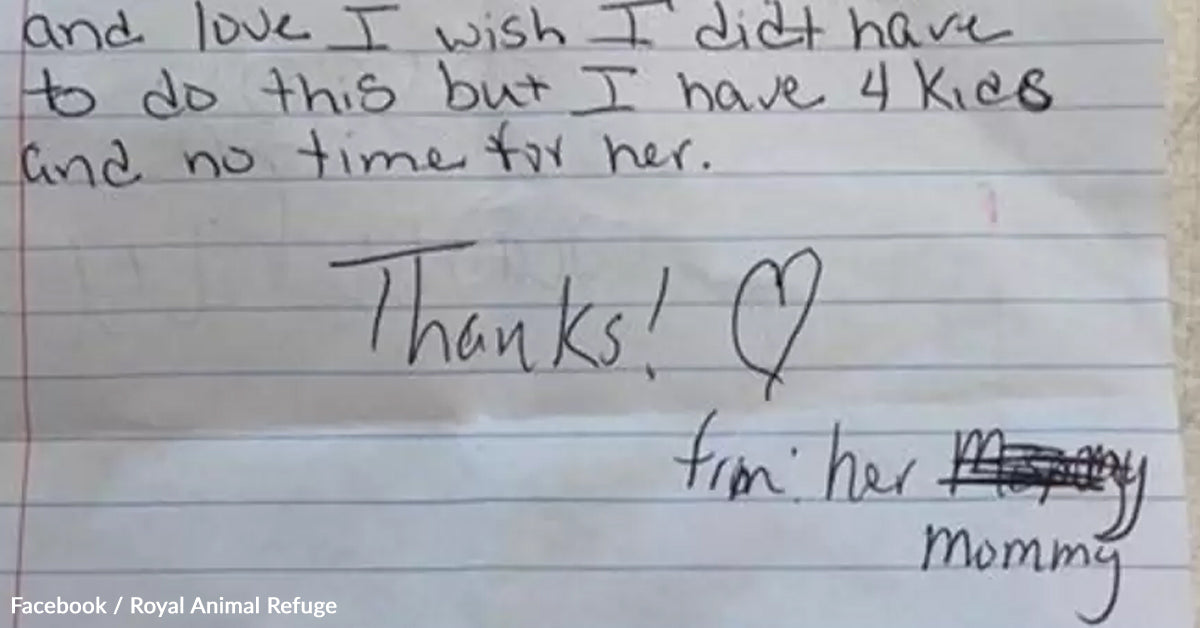 and love I wish I didt have
to do this but I have 4 Kids
and no time for her.
Thanks! ♡
frm: her
mommy
Facebook / Royal Animal Refuge